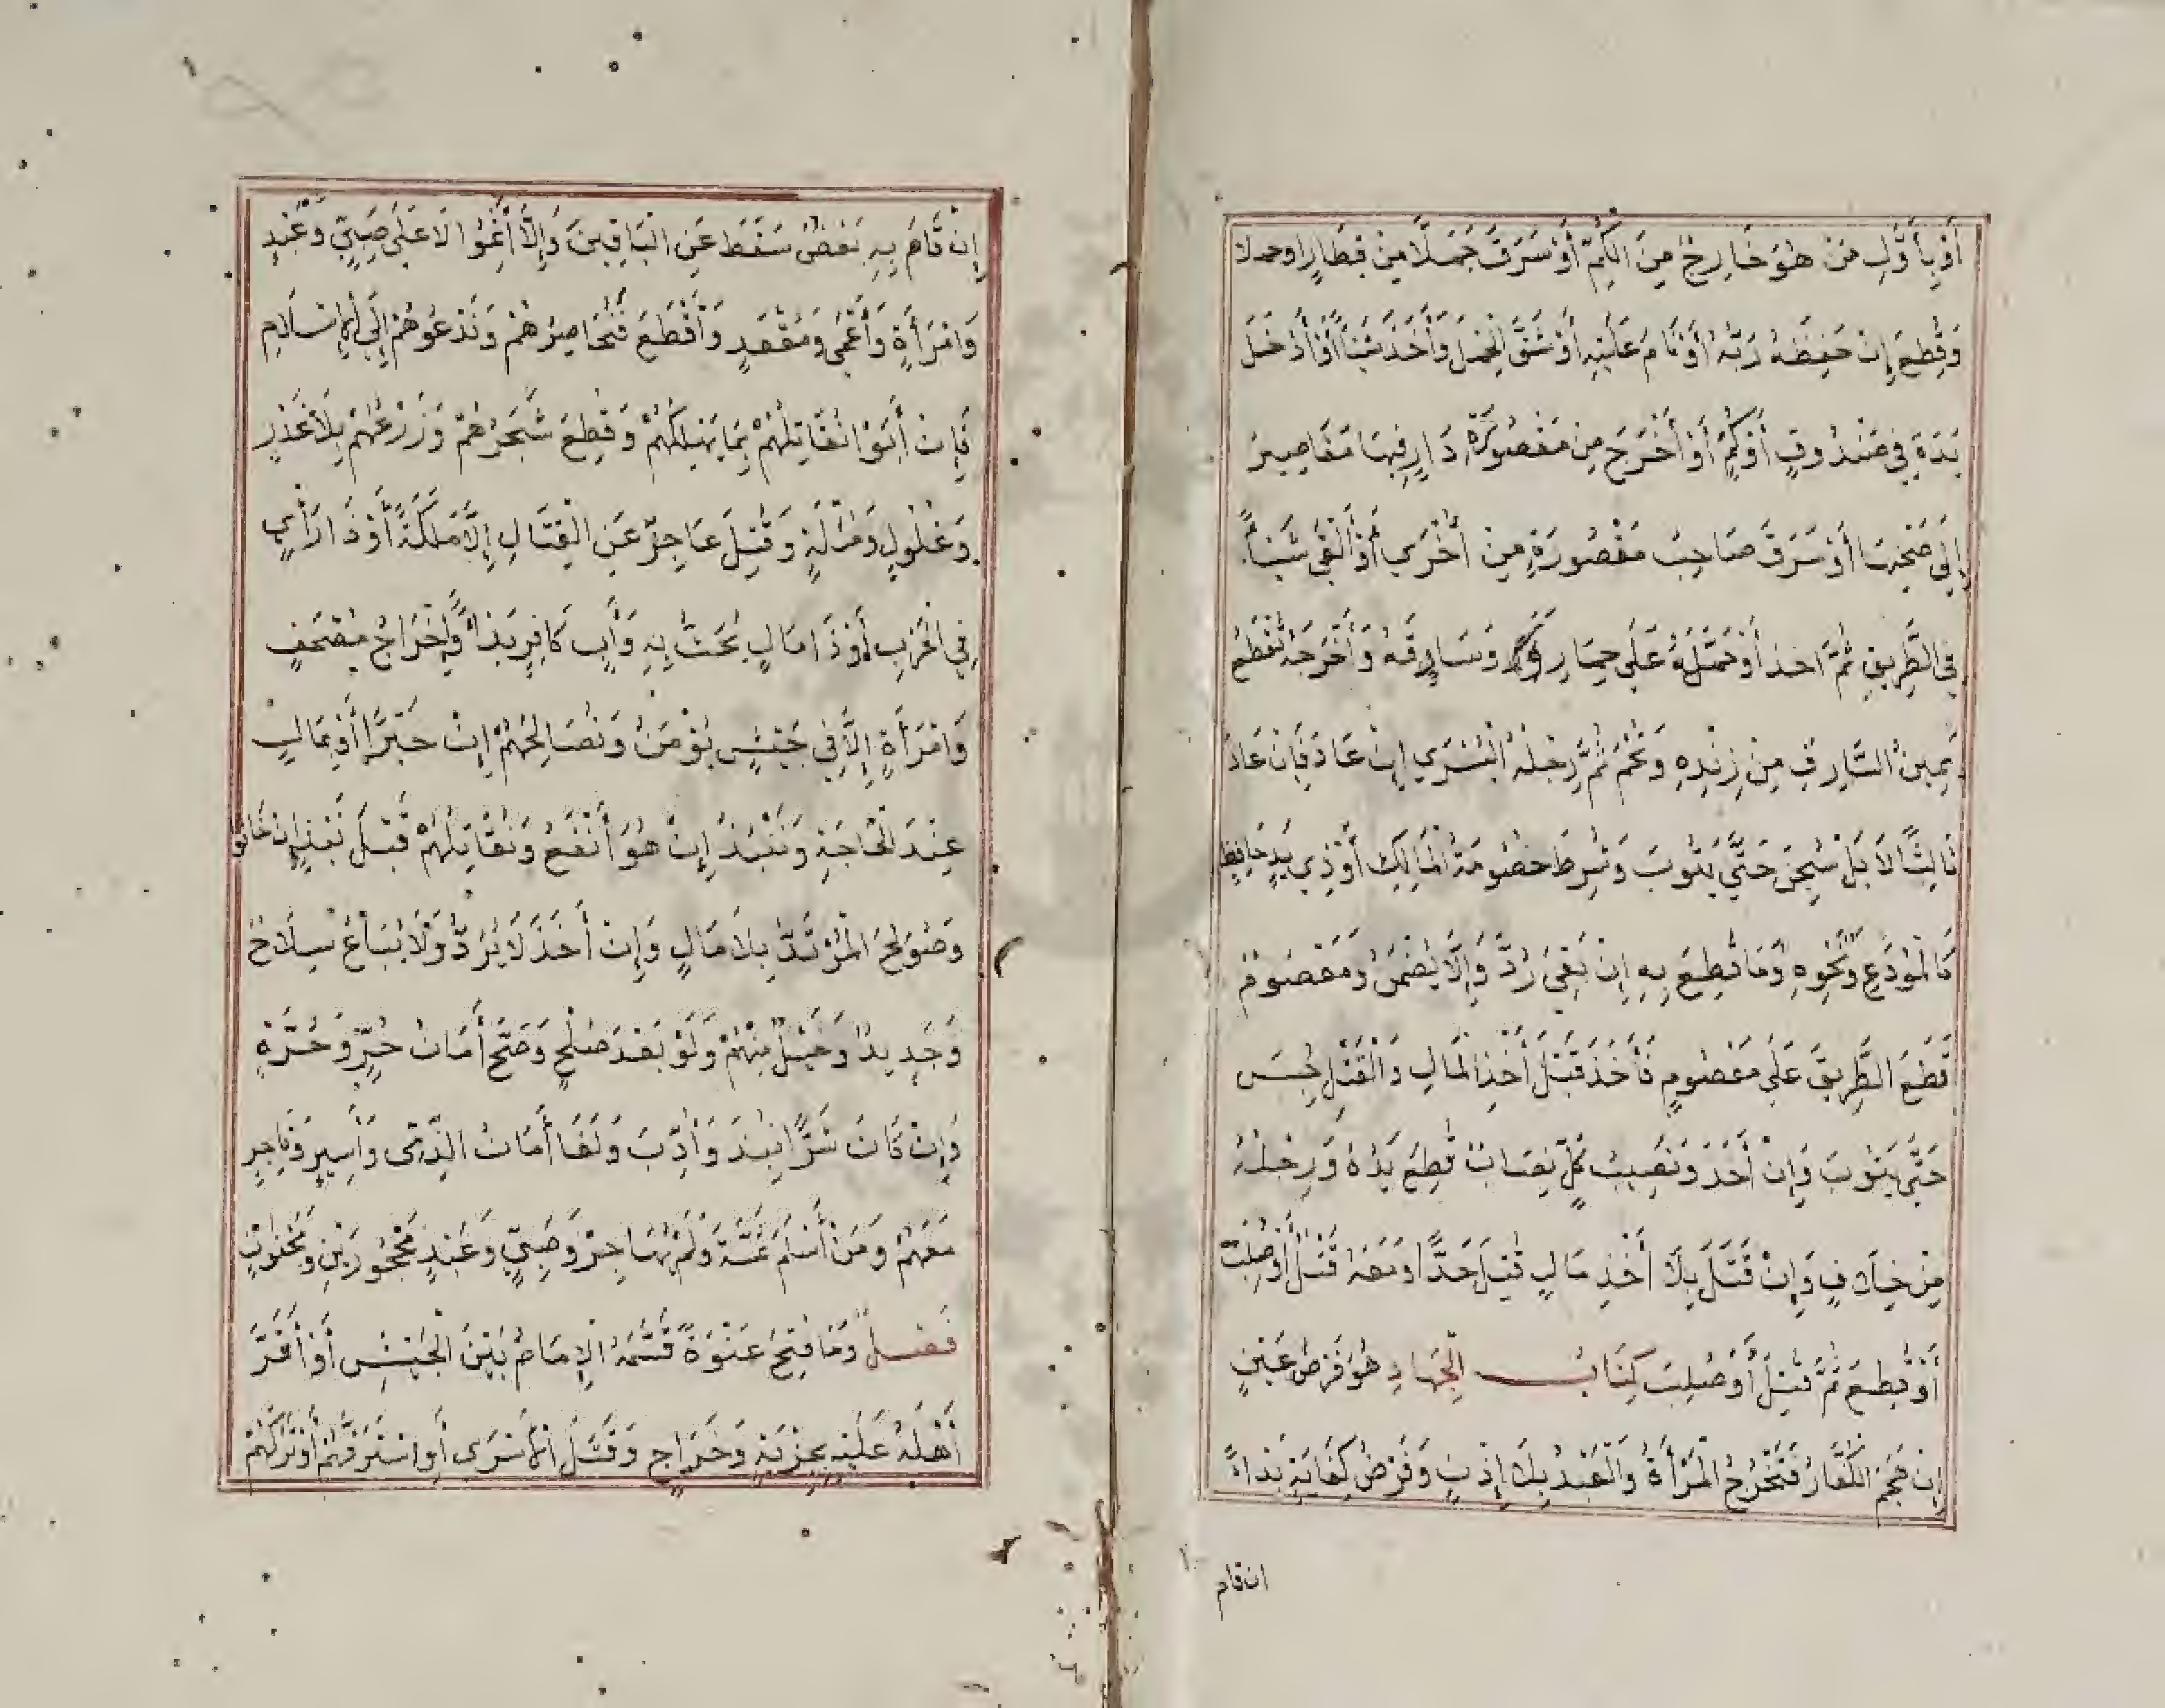 أَوْ بِأَوَّلِ مَنْ هُوَ خَارِجٌ مِنَ الكُمِّ أَوْ سَرَقَ جَمَلًا مِنْ قِطَارٍ اوحملا
وَقُطِعَ إِنْ حَفِظَهُ رَبُّهُ أَوْ نَامَ عَلَيْهِ أَوْ شَقَّ الْحِمْلَ وَأَخَذَ شَيْئًا أَوْ أَدْخَلَ
يَدَهُ فِي صَنْدُوقٍ أَوْ كُمٍّ أَوْ أَخْرَجَ مِنْ مَقْصُورَةِ دَارٍ فِيهَا مَقَاصِيرُ
إِلَى صَحْنِهَا أَوْ سَرَقَ صَاحِبُ مَقْصُورَةٍ مِنْ أُخْرَى أَوْ أَلْقَى شَيْئًا
فِي الطَّرِيقِ ثُمَّ اخذ أَوْ حَمَّلَهُ عَلَى حِمَارٍ وَسَاقَهُ وَأَخْرَجَهُ تُقْطَعُ
يَمِينُ السَّارِقِ مِنْ زِنْدِهِ وَتُحْسَمُ ثُمَّ رِجْلُهُ الْيُسْرَى إِنْ عَادَ فَإِنْ عَادَ
ثَالِثًا لَا بَلْ سُجِنَ حَتَّى يَتُوبَ وَشُرِطَ خُصُومَةُ الْمَالِكِ أَوْ ذِي يَدٍ حَافِظٍ
كَالْمُودَعِ وَنَحْوِهِ وَمَا قُطِعَ بِهِ إِنْ بَقِيَ رُدَّ وَإِلَّا لَا يُضْمَنُ وَمَعْصُومٌ
قَطَعَ الطَّرِيقَ عَلَى مَعْصُومٍ فَأُخِذَ قَبْلَ أَخْذِ الْمَالِ وَالْقَتْلِ حُبِسَ
حَتَّى يَتُوبَ وَإِنْ أَخَذَ وَنَصِيبُ كُلٍّ نِصَابٌ قُطِعَ يَدُهُ وَرِجْلُهُ
مِنْ خِلَافٍ وَإِنْ قَتَلَ بِلَا أَخْذِ مَالٍ قُتِلَ حَدًّا وَمَعَهُ قُتِلَ أَوْ صُلِبَ
أَوْ قُطِعَ ثُمَّ قُتِلَ أَوْ صُلِبَ كِتَابُ الْجِهَادِ هُوَ فَرْضُ عَيْنٍ
إِنْ هَجَمَ الْكُفَّارُ فَتَخْرُجُ الْمَرْأَةُ وَالْعَبْدُ بِلَا إِذْنٍ وَفَرْضُ كِفَايَةٍ بَدَاءً
ان قام
إِنْ قَامَ بِهِ بَعْضٌ سَقَطَ عَنِ الْبَاقِينَ وَإِلَّا أَثِمُوا لَا عَلَى صَبِيٍّ وَعَبْدٍ
وَامْرَأَةٍ وَأَعْمَى وَمُقْعَدٍ وَأَقْطَعَ فَنُحَاصِرُهُمْ وَنَدْعُوهُمْ إِلَى الْإِسْلَامِ
فَإِنْ أَبَوْا نُقَاتِلُهُمْ بِمَا يُهْلِكُهُمْ وَقَطْعِ شَجَرِهِمْ وَزَرْعِهِمْ بِلَا غَدْرٍ
وَغُلُولٍ وَمُثْلَةٍ وَقَتْلِ عَاجِزٍ عَنِ الْقِتَالِ إِلَّا مَلَكَةً أَوْ ذَا رَأْيٍ
فِي الْحَرْبِ أَوْ ذَا مَالٍ يَحُثُّ بِهِ وَأَبٍ كَافِرٍ بَدَاءً وَإِخْرَاجِ مُصْحَفٍ
وَامْرَأَةٍ إِلَّا فِي جَيْشٍ يُؤْمَنُ وَنُصَالِحُهُمْ إِنْ خَيْرًا أَوْ بِمَالٍ
عِنْدَ الْحَاجَةِ وَنَنْبِذُ إِنْ هُوَ أَنْفَعُ وَنُقَاتِلُهُمْ قَبْلَ نَبْذٍ إِنْ خَانُوا
وَصُولِحَ الْمُرْتَدُّ بِلَا مَالٍ وَإِنْ أُخِذَ لَا يُرَدُّ وَلَا يُبَاعُ سِلَاحٌ
وَحَدِيدٌ وَخَيْلٌ مِنْهُمْ وَلَوْ بَعْدَ صُلْحٍ وَصَحَّ أَمَانُ حُرٍّ وَحُرَّةٍ
وَإِنْ كَانَ شَرًّا نُبِذَ وَأُدِّبَ وَلَغَا أَمَانُ الذِّمِّي وَأَسِيرٍ وَتَاجِرٍ
مَعَهُمْ وَمَنْ أَسْلَمَ ثَمَّةَ وَلَمْ يُهَاجِرْ وَصَبِيٍّ وَعَبْدٍ مَحْجُورَيْنِ وَمَجْنُونٍ
فَصْلٌ وَمَا فُتِحَ عَنْوَةً قَسَّمَهُ الْإِمَامُ بَيْنَ الْجَيْشِ أَوْ أَقَرَّ
أَهْلَهُ عَلَيْهِ بِجِزْيَةٍ وَخَرَاجٍ وَقَتَلَ الْأَسْرَى أَوِ اسْتَرَقَّهُمْ أَوْ تَرَكَهُمْ